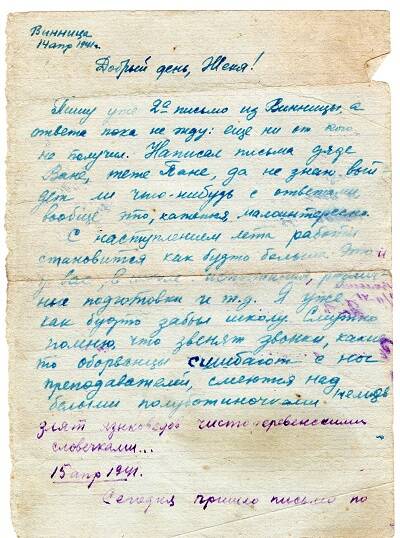 Винница
14 апр 1941г.
Добрый день, Женя!
Пишу уже 2ое письмо из Винницы, а
ответа пока не жду: еще ни от кого
не получил. Написал письма дяде
Ване, тете Пане, да не знаю вый-
дет ли что-нибудь с ответами
вообще это, кажется, малоинтересно
С наступлением лета работы
становится как будто больше. Это
у вас, в
ные подготовки и т.д. Я уже
как будто забыл школу. Смутно
помню, что звенят звонки, какие
то оборванцы сшибают с ног
преподавателей, смеются над
белыми полуботиночками
злят языковедов чисто деревенскими
словечками...
15 апр 1941.
Сегодня пришло письмо по